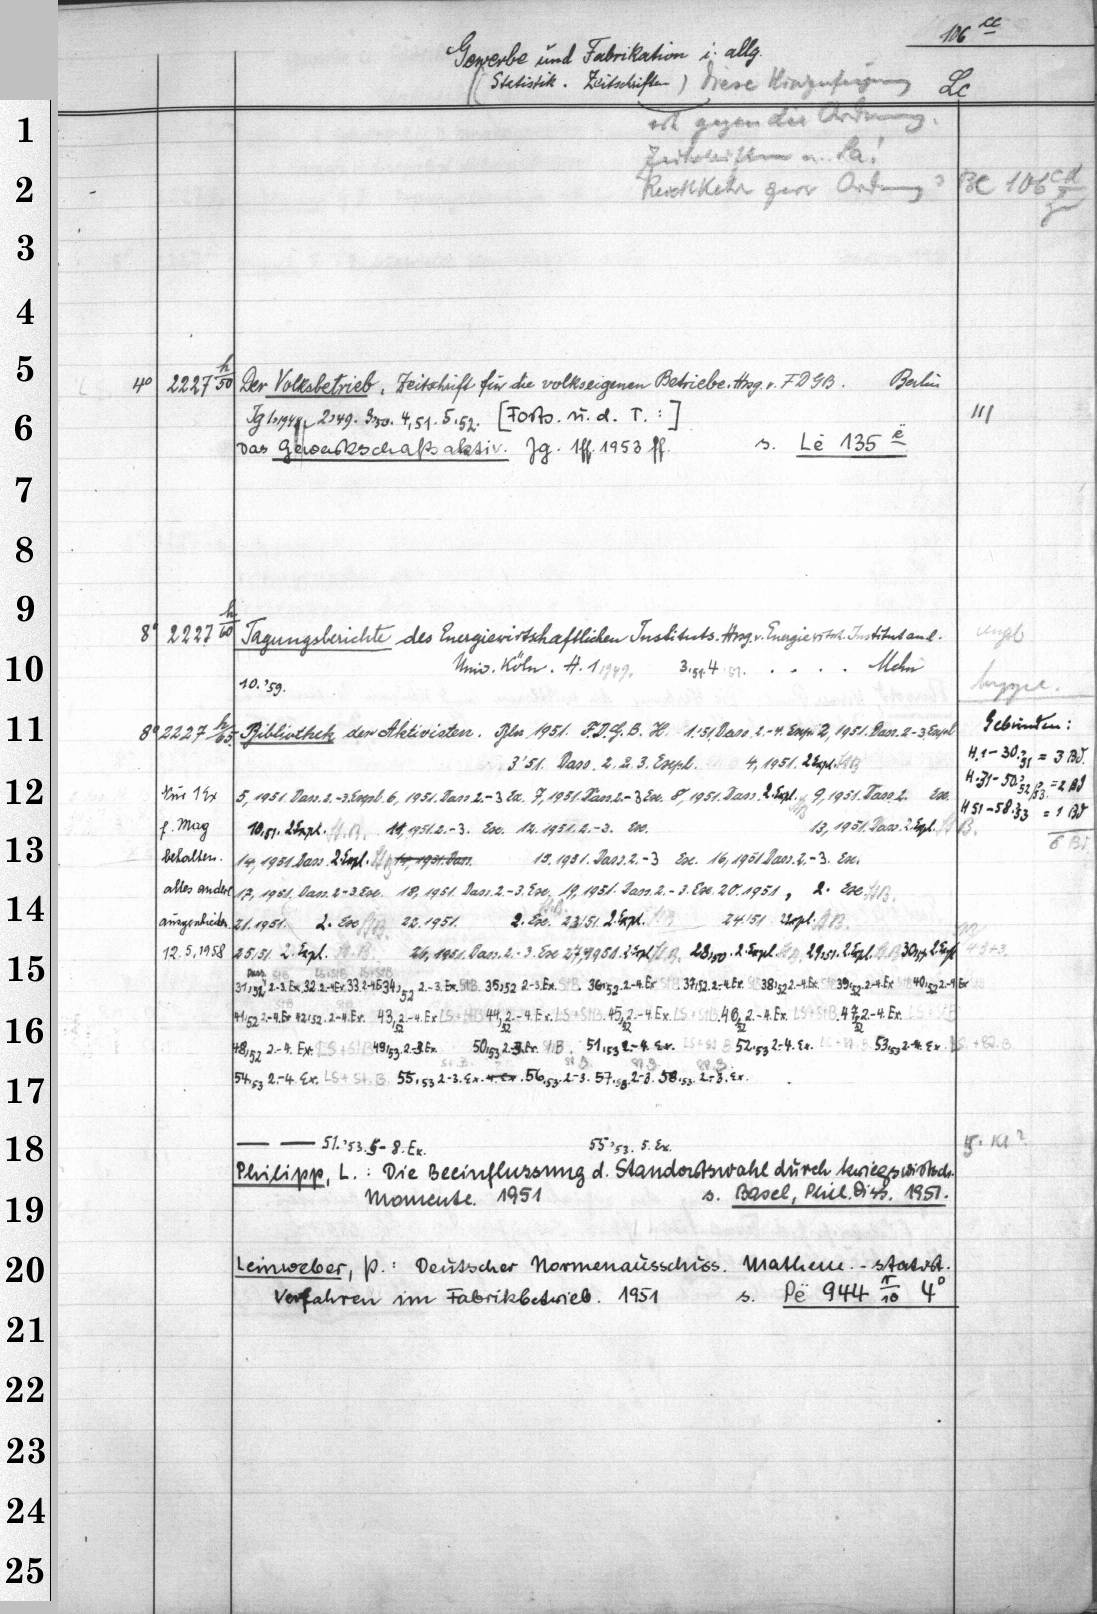 106 cc
Gewerbe und Fabrikation i. allg.
(Statistik. Zeitschriften) Diese Hinzufügung Lc
ist gegen die Ordnung.
1
2
3
4
5
4° 2227 h/50 Der Volksbetrieb. Zeitschrift für die volkseigenen Betriebe. Hrsg. v. FDGB. Berlin
6
2,49. 3,50. 4,51. 5,52. [Forts. u. d. T.:]
Das Gewerkschaftsaktiv. Jg. 1ff. 1953 ff. s. Lë 135 ë
7
8
9
8° 2227 h/60 Tagungsberichte des Energiewirtschaftlichen Instituts. Hrsg. v. Energiewirtsch. Institut an d.
10
Univ. Köln. H. 1 1949. 3,51. 4,51. . . . .
10.'59.
11
8° 2227 h/65 Bibliothek des Aktivisten. Bln 1951. F.D.G.B. H. 1.51 Dass. 2.-4. Expl 2, 1951. Dass. 2-3 Expl
Gebunden:
3'51. Dass. 2. u. 3. Exepl. 4, 1951. 2 Expl.
H. 1-30. 51 = 3 Bd.
H. 31-50. 52/53. = 2 Bd
H 51-58. 53 = 1 Bd
6 Bd.
12
Nur 1 Ex 5, 1951. Dass. 2.-3. Expl. 6, 1951. Dass. 2.-3 Ex. 7, 1951. Dass. 2.-3 Exe. 8, 1951. Dass. 2 Expl. 9, 1951. Dass. 2. Exe.
f. Mag 10,51. 2 Expl. St.B. 11, 1951. 2.-3. Exe. 12. 1951. 2.-3. Exe. 13, 1951. Dass. 2 Expl. St.B.
13
behalten. 14, 1951. Dass. 2 Expl. 15. 1951. Dass. 2.-3 Exe. 16, 1951 Dass. 2.-3. Exe.
alles andere 17, 1951. Dass. 2-3. Exe. 18, 1951. Dass. 2.-3. Exe. 19, 1951. Dass. 2.-3. Exe. 20. 1951, 2. Exe StB.
14
ausgeschieden. 21. 1951. 2. Exe StB. 22. 1951. 2. Exe. 23,51. 2 Expl. StB 24,51 2 Expl. StB.
12.5.1958 25,51 2. Expl. St.B. 26, 1951. Dass. 2.-3. Exe 27, 1951. 2 Expl. 28,50. 2 Expl. 29,51. 2 Expl. 30,51. 2 Expl
15
31,52 2-3. Ex. 32. 2.-4 Ex 33. 2.-4 Ex 34,52 2.-3. Ex. StB. 35,52 2-3. Ex. StB. 36,52. 2.-4. Ex StB. 37,52. 2.-4. Ex. StB. 38,52 2.-4. Ex StB. 39,52. 2.-4. Ex StB. 40,52 2.-4 Ex
16
41,52 2.-4. Ex 42,52. 2.-4. Ex. 43,52 2.-4. Ex LS+StB 44,52 2.-4. Ex. LS+StB. 45,52 2.-4. Ex. LS+StB. 46,52 2.-4. Ex. LS+StB. 47,52 2.-4. Ex. LS+StB
48,52 2.-4. Ex. LS+StB 49,53. 2.-3. Ex. 50,53 2.-3. Ex. StB. 51,53 2.-4. Ex. LS+StB 52,53 2.-4. Ex. LS+St.B. 53,53 2.-4. Ex. LS.+St.B.
17
54,53 2.-4. Ex. LS+St.B. 55,53 2.-3. Ex. 56,53. 2.-3. 57,53. 2.-3. 58,53. 2.-3. Ex.
18
— — 51.'53. 5-8. Ex. 55,'53. 5. Ex.
Philipp, L.: Die Beeinflussung d. Standortswahl durch kriegswirtsch.
19
Momente. 1951 s. Basel, Phil. Diss. 1951.
20
Leinweber, P.: Deutscher Normenausschuss. Mathem.-statist.
Verfahren im Fabrikbetrieb. 1951 s. Pë 944 n/10 4°
21
22
23
24
25